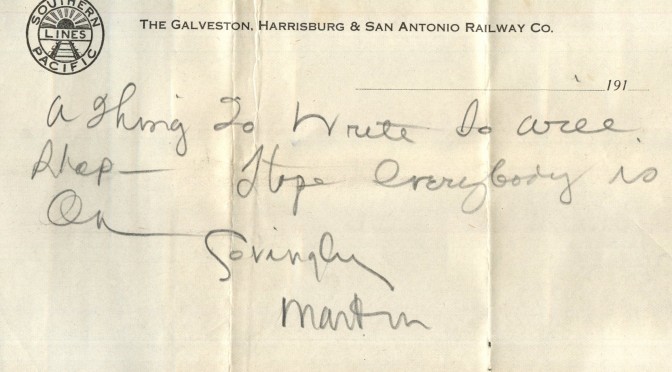 SOUTHERN
LINES
PACIFIC
THE GALVESTON, HARRISBURG & SAN ANTONIO RAILWAY CO.
191
a thing to Write So will
Stop— Hope everybody is
OK
Lovingly
Martin